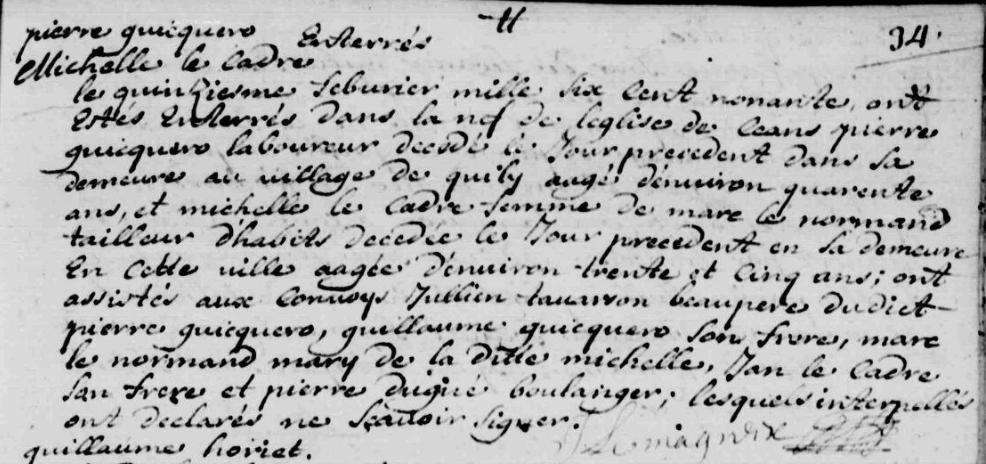 pierre guicquero Enterrés 34.
Michelle le Cadre
le quinziesme feburier mille six cent nonante, ont
Estés Enterrés dans la nef de leglise de Ceans pierre
guicquero laboureur decedé le Jour precedent dans sa
demeure au village de quily aagé d'enuiron quarente
ans, et michelle le Cadre femme de marc le normand
tailleur dhabits decedée le Jour precedent en sa demeure
En Cette ville aagée d'enuiron trente et Cinq ans; ont
assistés aux Conuoys Jullien beaupere dudict
pierre guicquero, guillaume guicquero son frere, marc
le normand mary de la ditte michelle, Jan le Cadre
son frere et pierre dugué boulanger; lesquels interpellés
ont declarés ne scauoir signer.
guillaume horiet.